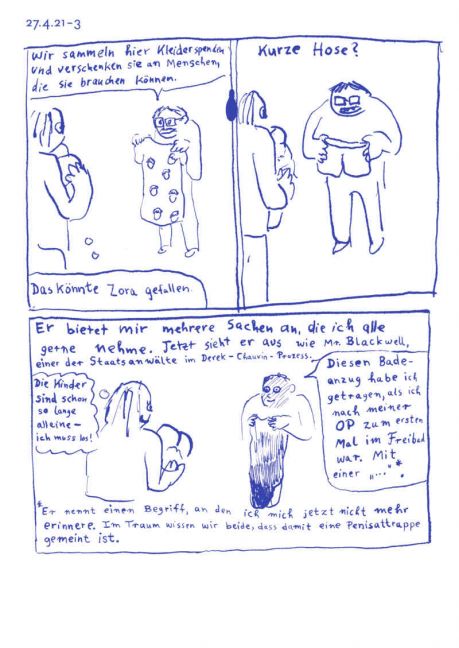 27.4.21-3
Wir sammeln hier Kleiderspenden
und verschenken sie an Menschen,
die sie brauchen können.
Das könnte Zora gefallen.
Kurze Hose?
Er bietet mir mehrere Sachen an, die ich alle
gerne nehme. Jetzt sieht er aus wie Mr. Blackwell,
einer der Staatsanwälte im Derek-Chauvin-Prozess.
Die Kinder
sind schon
so lange
alleine -
ich muss los!
Diesen Bade-
anzug habe ich
getragen, als ich
nach meiner
OP zum ersten
Mal im Freibad
war. Mit
einer „..."*
*Er nennt einen Begriff, an den ich mich jetzt nicht mehr
erinnere. Im Traum wissen wir beide, dass damit eine Penisattrappe
gemeint ist.